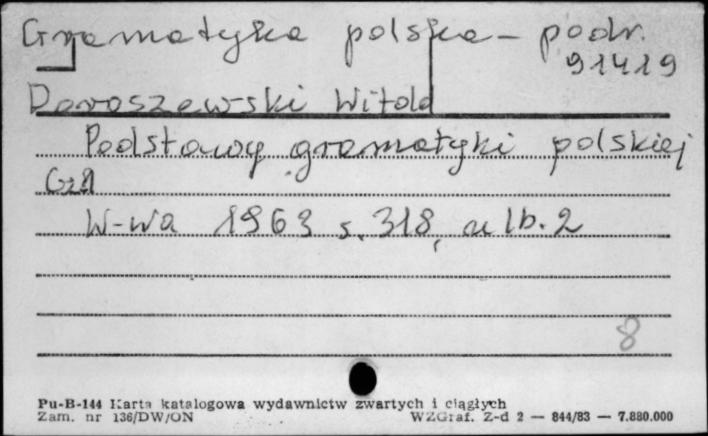 Gramatyka polska - podr.
91419
Doroszewski Witold
Podstawy gramatyki polskiej
Cz. 1
W-wa 1963 s. 318, nlb. 2
8
Pu-B-144 Karta katalogowa wydawnictw zwartych i ciągłych
Zam. nr 136/DW/ON WZGraf. Z-d 2 — 844/83 — 7.880.000